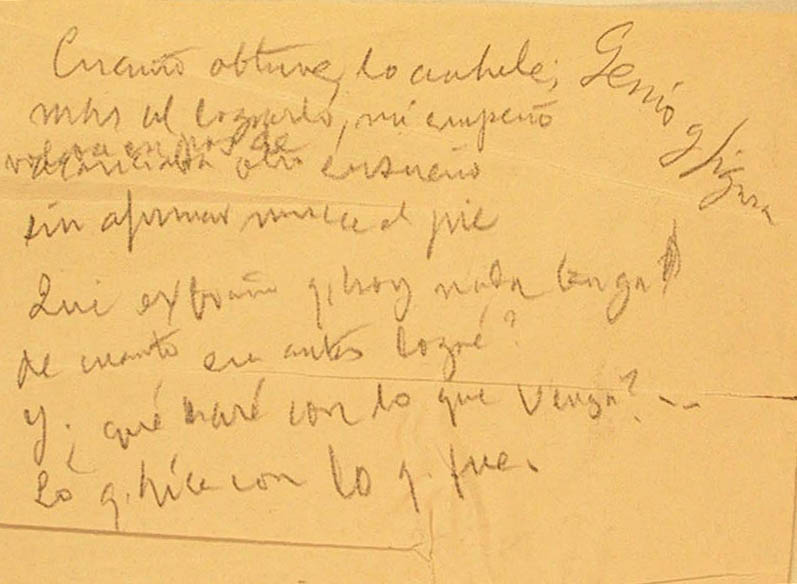 Cuanto obtuve, lo anhelé;
mas al lograrlo, mi empeño
volaba en pos de
acariciaba otro ensueño
sin afirmar nunca el pie
Qué extraño q. hoy nada tenga
de cuanto en antes logré?
Y ¿qué haré con lo que venga?...
Lo q. hice con lo q. fue.
Genio y figura